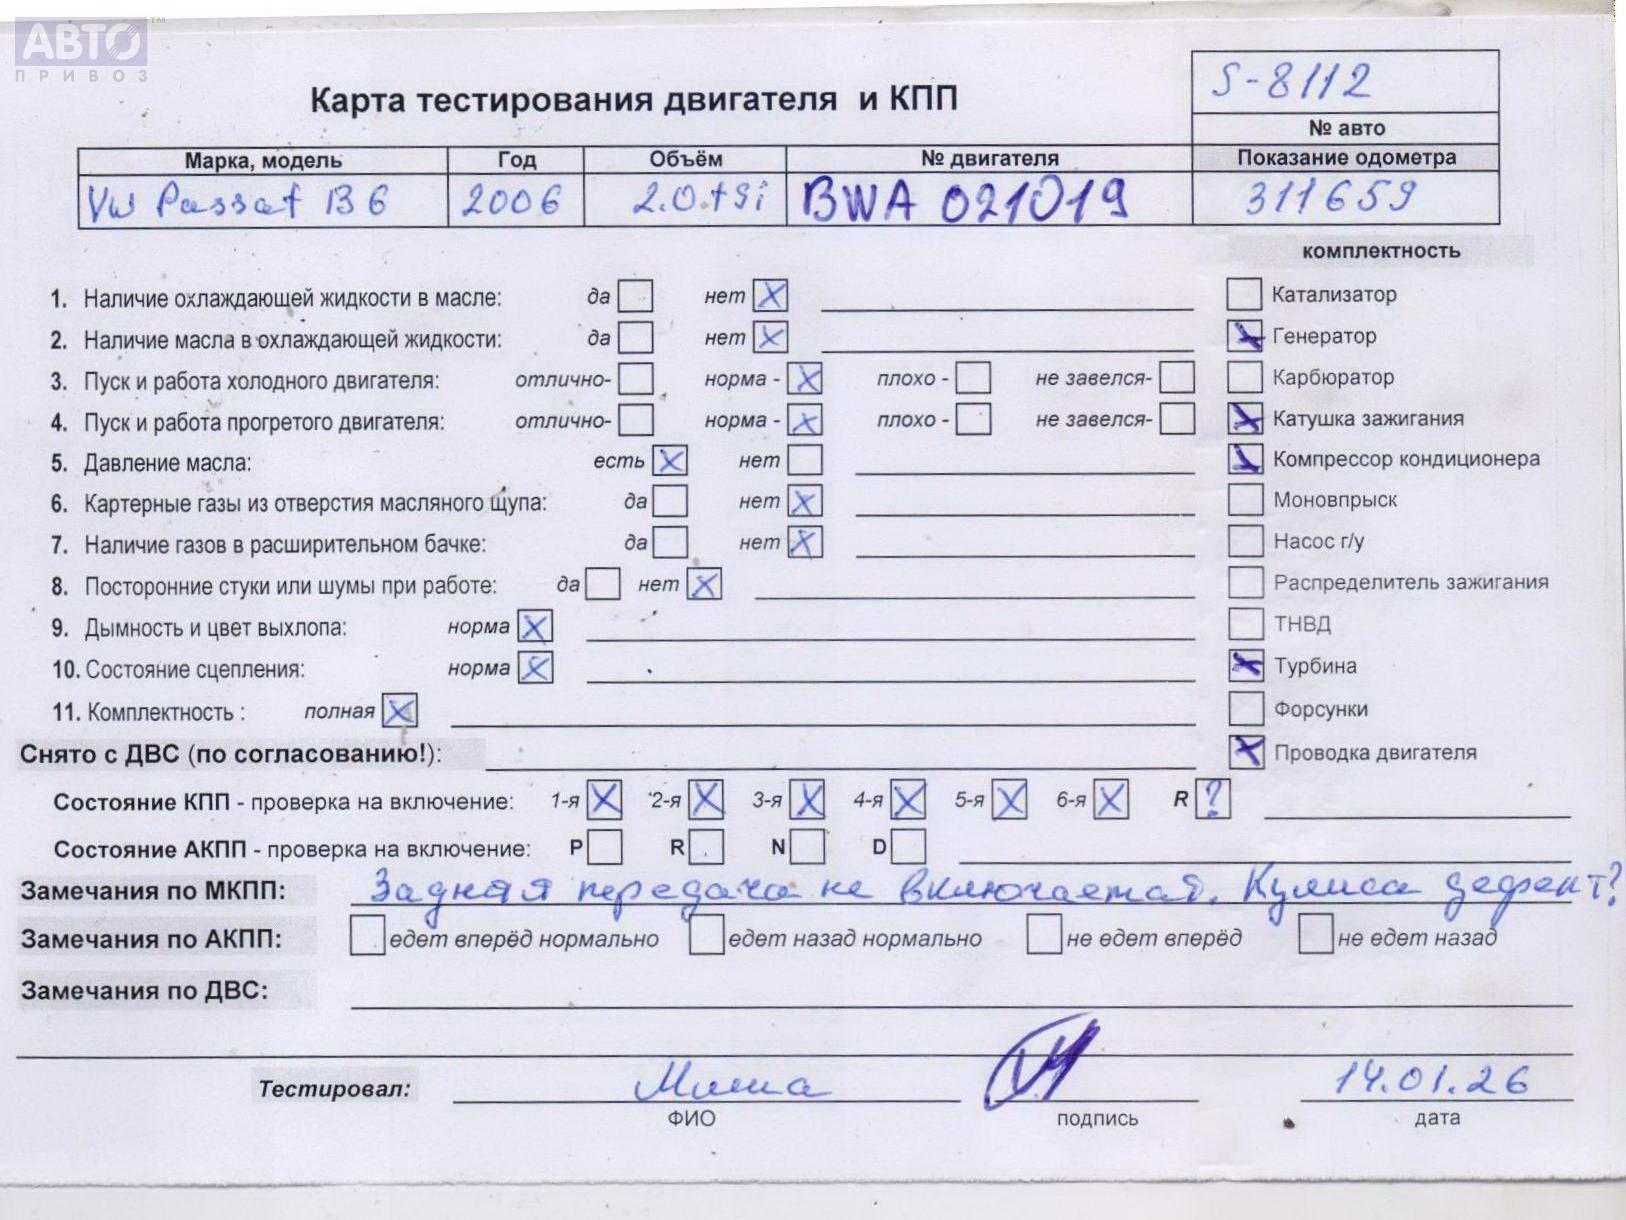 АВТО ™
ПРИВОЗ
S-8112
Карта тестирования двигателя и КПП
№ авто
Марка, модель Год Объём № двигателя Показание одометра
VW Passat B6 2006 2.0.tsi BWA 021019 311659
комплектность
1. Наличие охлаждающей жидкости в масле: да нет X Катализатор
2. Наличие масла в охлаждающей жидкости: да нет X Генератор X
3. Пуск и работа холодного двигателя: отлично- норма - X плохо - не завелся- Карбюратор
4. Пуск и работа прогретого двигателя: отлично- норма - X плохо - не завелся- X Катушка зажигания
5. Давление масла: есть X нет X Компрессор кондиционера
6. Картерные газы из отверстия масляного щупа: да нет X Моновпрыск
7. Наличие газов в расширительном бачке: да нет X Насос г/у
8. Посторонние стуки или шумы при работе: да нет X Распределитель зажигания
9. Дымность и цвет выхлопа: норма X ТНВД
10. Состояние сцепления: норма X X Турбина
11. Комплектность : полная X Форсунки
Снято с ДВС (по согласованию!): X Проводка двигателя
Состояние КПП - проверка на включение: 1-я X 2-я X 3-я X 4-я X 5-я X 6-я X R ?
Состояние АКПП - проверка на включение: P R N D
Замечания по МКПП: Задняя передача не включается. Кулиса дефект?
Замечания по АКПП: едет вперёд нормально едет назад нормально не едет вперёд не едет назад
Замечания по ДВС:
Тестировал: Миша 14.01.26
ФИО подпись дата